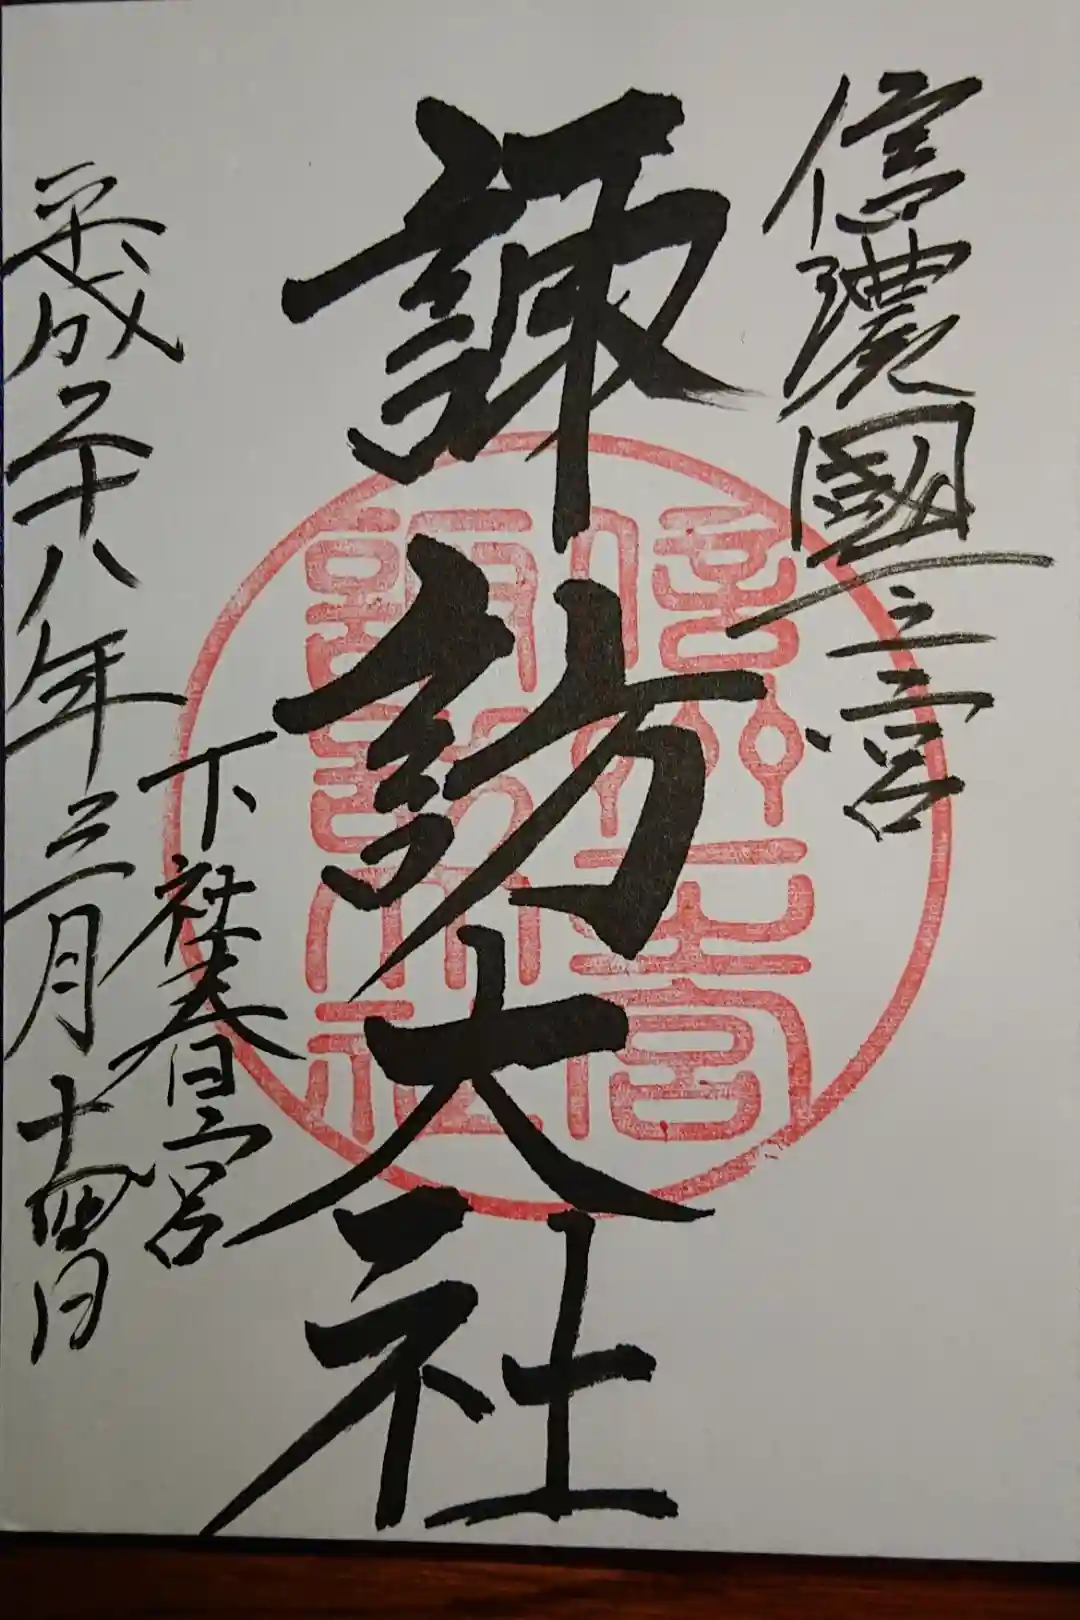 信濃國一之宮
諏訪大社
下社春宮
平成二十八年三月十四日
信州一之宮
諏訪大社